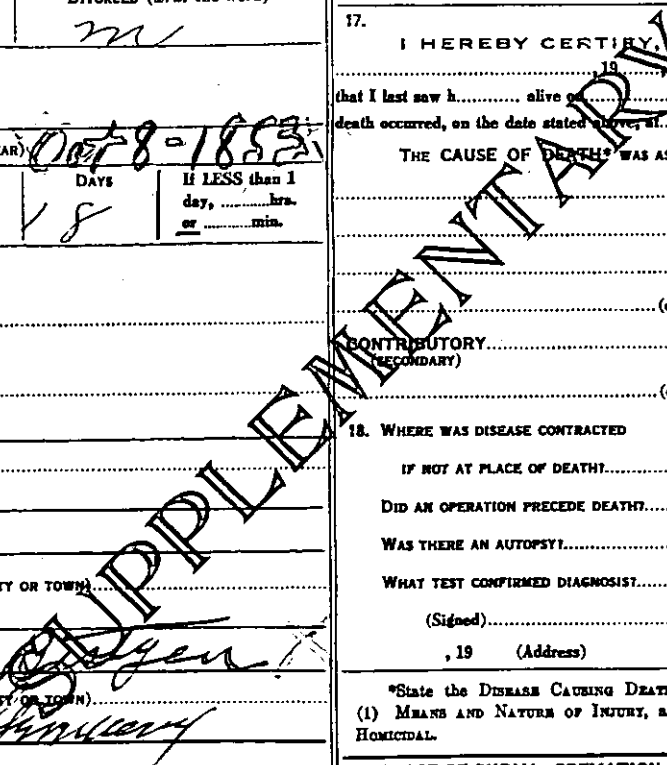 m
AR) Oct 8 - 1853
DAYS
If LESS than 1
day, ............hrs.
or ............min.
8
TY OR TOWN)
TY OR TOWN)
17.
I HEREBY CERTIFY,
, 19
that I last saw h............, alive on
death occurred, on the date stated above, at
THE CAUSE OF DEATH* WAS AS
CONTRIBUTORY
(SECONDARY)
18. WHERE WAS DISEASE CONTRACTED
IF NOT AT PLACE OF DEATH?
DID AN OPERATION PRECEDE DEATH?
WAS THERE AN AUTOPSY?
WHAT TEST CONFIRMED DIAGNOSIS?
(Signed)
, 19 (Address)
*State the DISEASE CAUSING DEAT
(1) MEANS AND NATURE OF INJURY, a
HOMICIDAL.
SUPPLEMENTARY